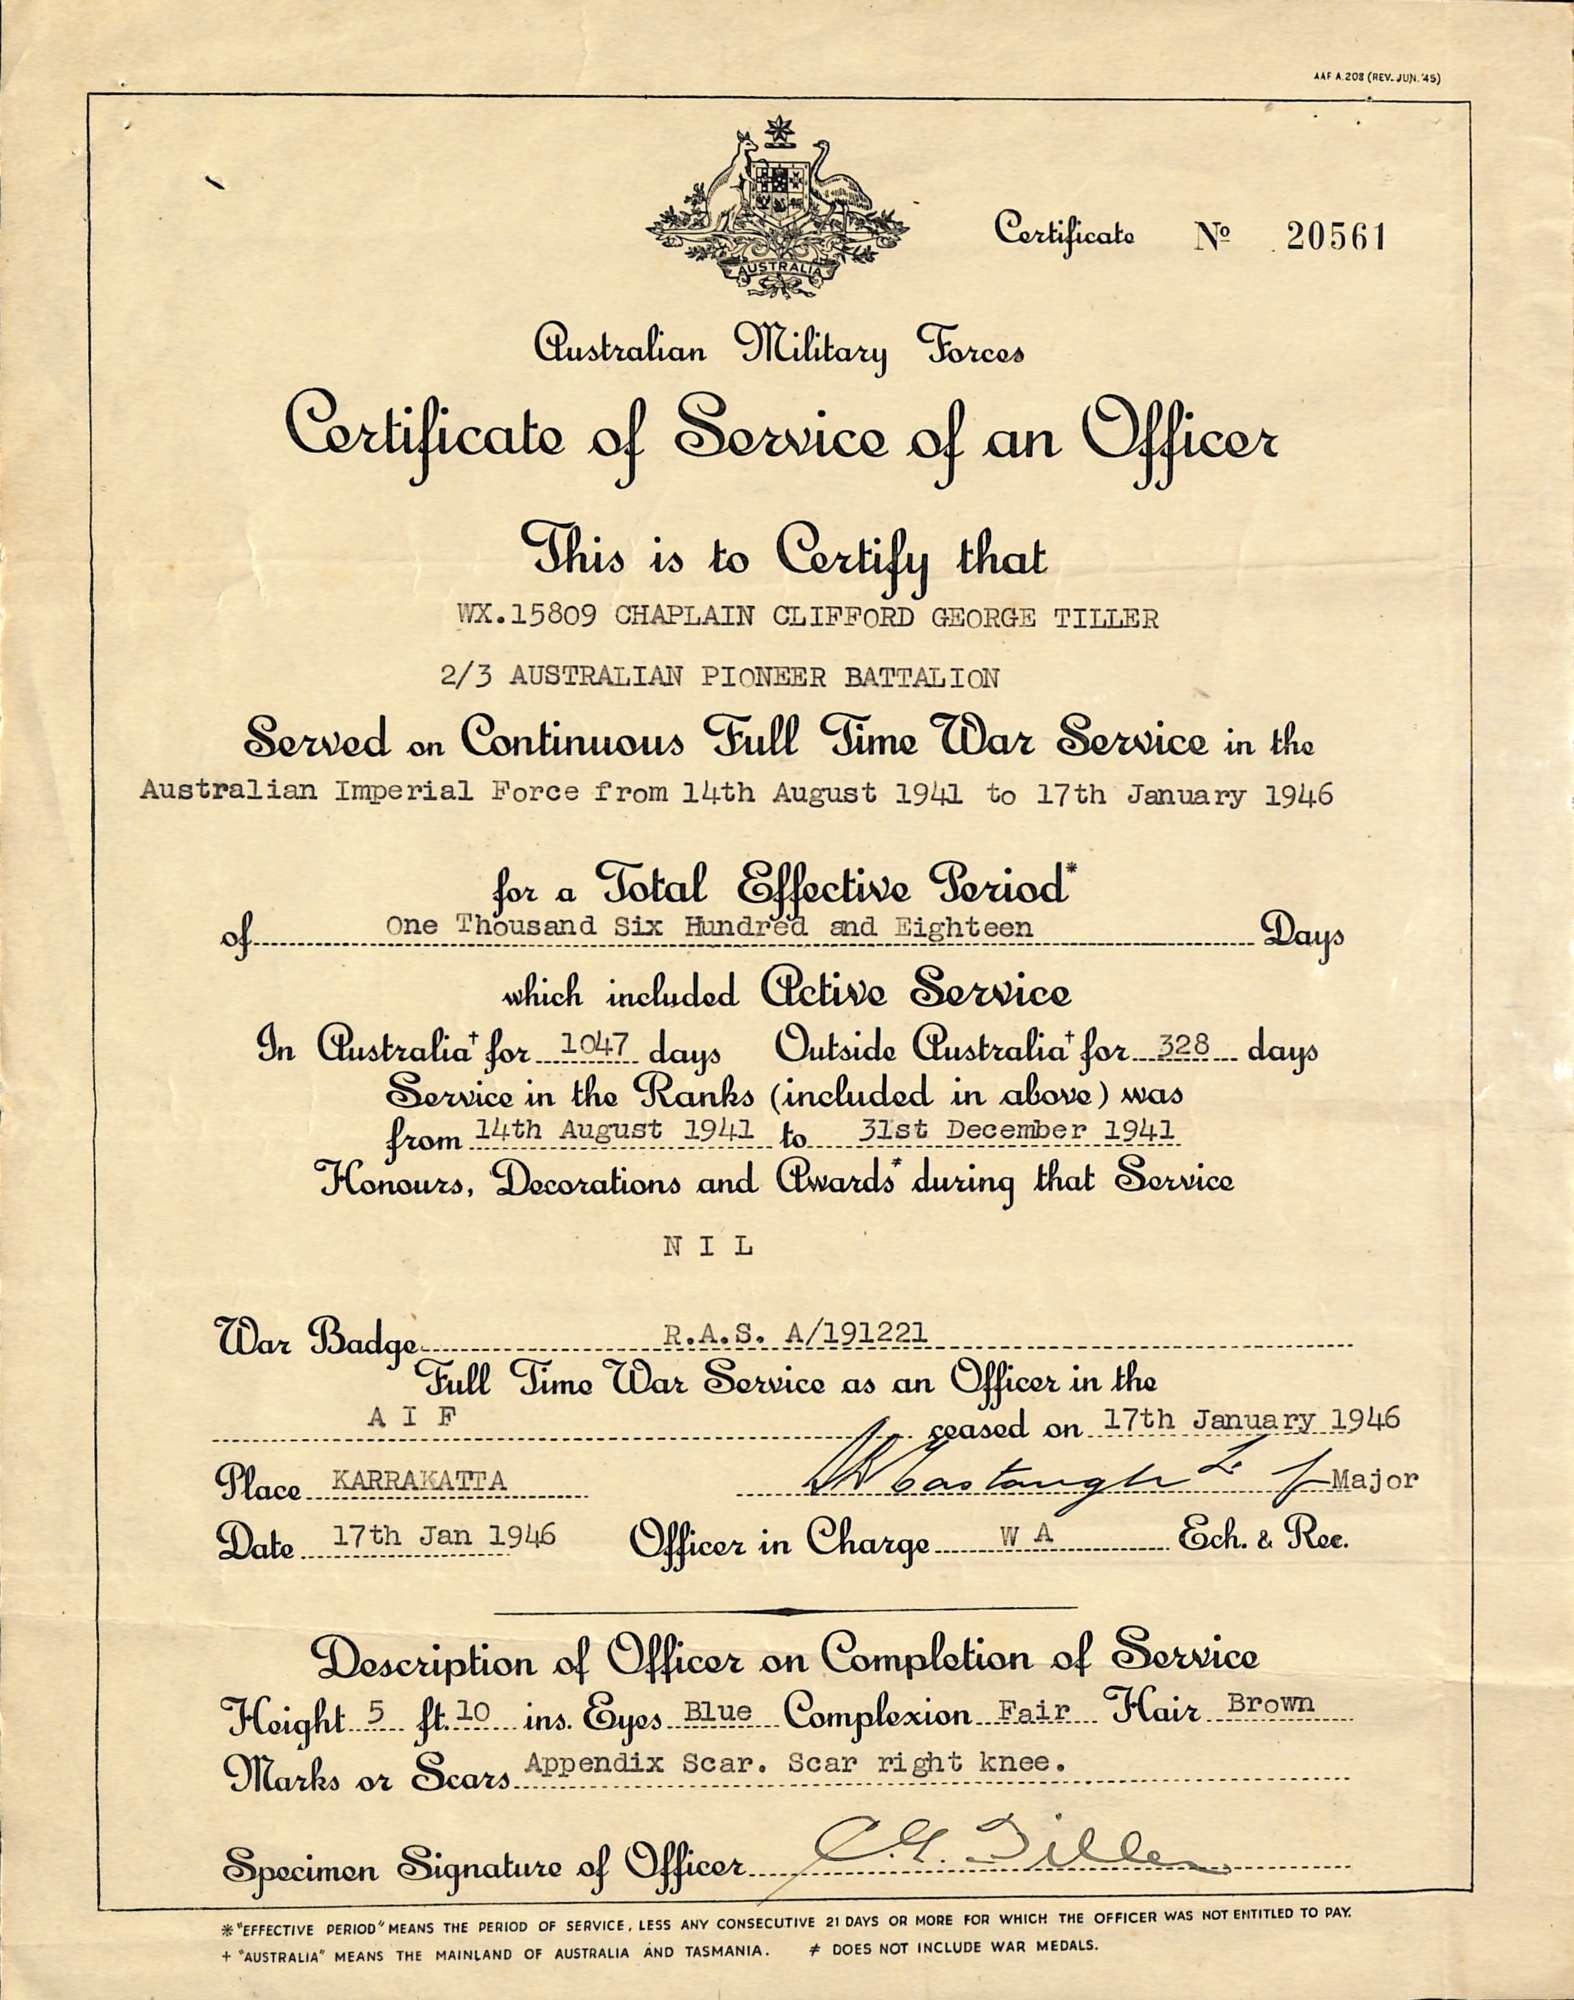 AAF A.208 (REV. JUN. '45)
AUSTRALIA
Certificate No 20561
Australian Military Forces
Certificate of Service of an Officer
This is to Certify that
WX.15809 CHAPLAIN CLIFFORD GEORGE TILLER
2/3 AUSTRALIAN PIONEER BATTALION
Served on Continuous Full Time War Service in the
Australian Imperial Force from 14th August 1941 to 17th January 1946
for a Total Effective Period*
of One Thousand Six Hundred and Eighteen Days
which included Active Service
In Australia† for 1047 days Outside Australia† for 328 days
Service in the Ranks (included in above) was
from 14th August 1941 to 31st December 1941
Honours, Decorations and Awards≠ during that Service
N I L
War Badge R.A.S. A/191221
Full Time War Service as an Officer in the
A I F ceased on 17th January 1946
Place KARRAKATTA Major
Date 17th Jan 1946 Officer in Charge W A Ech. & Rec.
Description of Officer on Completion of Service
Height 5 ft. 10 ins. Eyes Blue Complexion Fair Hair Brown
Marks or Scars Appendix Scar. Scar right knee.
Specimen Signature of Officer C.G. Tiller
* "EFFECTIVE PERIOD" MEANS THE PERIOD OF SERVICE, LESS ANY CONSECUTIVE 21 DAYS OR MORE FOR WHICH THE OFFICER WAS NOT ENTITLED TO PAY.
+ "AUSTRALIA" MEANS THE MAINLAND OF AUSTRALIA AND TASMANIA. ≠ DOES NOT INCLUDE WAR MEDALS.